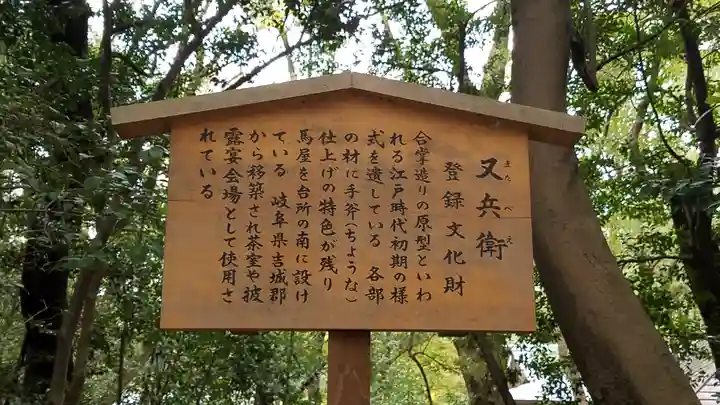 又兵衛
またべえ
登録文化財
合掌造りの原型といわ
れる江戸時代初期の様
式を遺している 各部
の材に手斧(ちょうな)
仕上げの特色が残り
馬屋を台所の南に設け
ている 岐阜県吉城郡
から移築され茶室や披
露宴会場として使用さ
れている